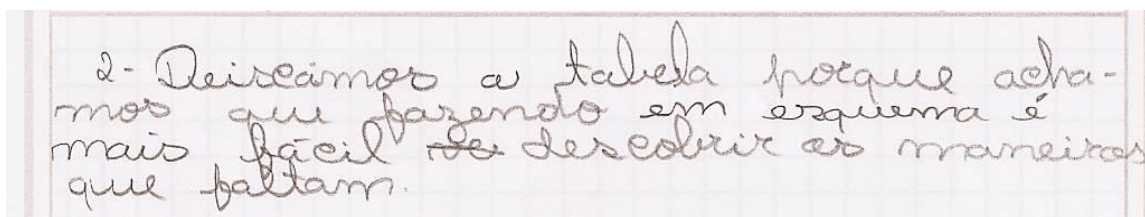 2- Deixámos a tabela porque acha-
mos que fazendo em esquema é
mais fácil descobrir as maneiras
que faltam.